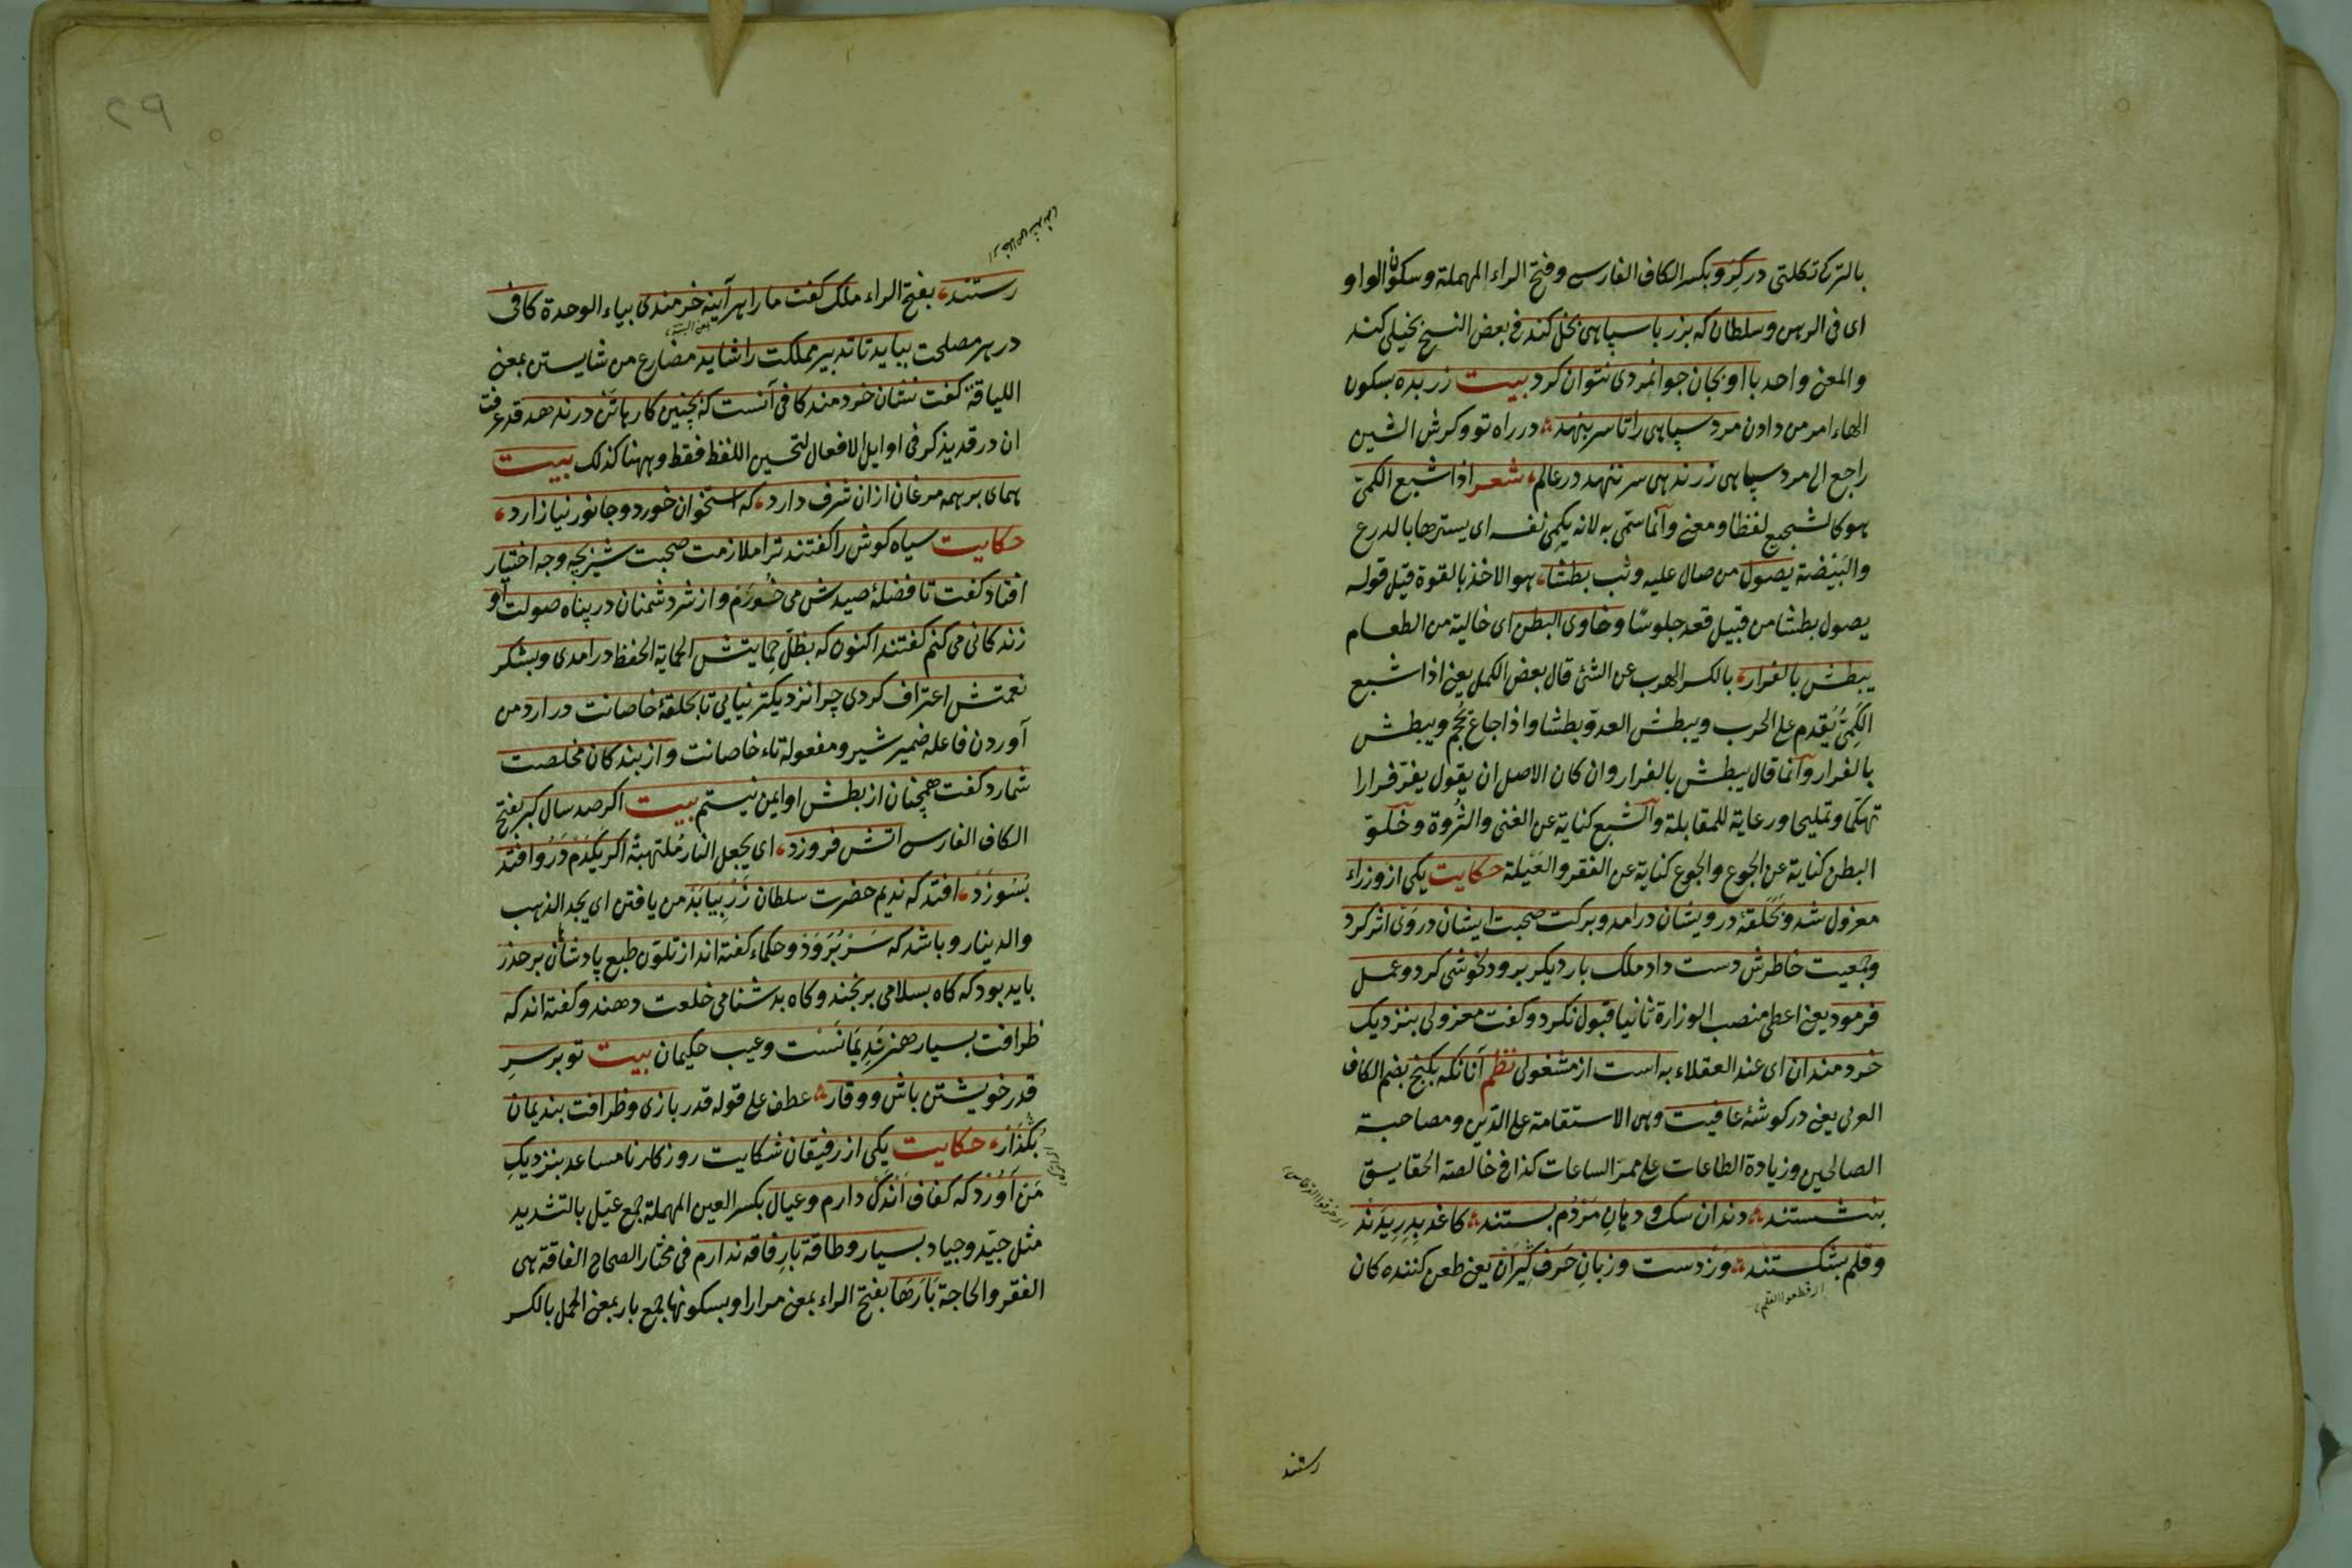 بالتركى تكلتى در كرو بكسر الكاف الفارسى وفتح الراء المهملة وسكون الواو
اى فى الرهن وسلطان كه بزر با سپاهى بخل كند فى بعض النسخ بخيلى كند
والمعنى واحد با او بجان جوانمردى نتوان كرد بيت زر بده بسكون
الهاء امر من دادن مرد سپاهى را تا سر بنهد در راه تو وكرش الشين
راجع الى مرد سپاهى زر ندهى سر ننهد در عالم شعر اذا شبع الكمىّ
هو كالشجيع لفظا ومعنى وانما سمّى به لانه يكمى نفسه اى يسترها بالدرع
والبيضة يصول من صال عليه وثب بطشا هو الاخذ بالقوة قيل قوله
يصول بطشا من قبيل قعد جلوسًا وخاوى البطن اى خالية من الطعام
يبطش بالفرار بالكسر الهرب عن الشئ قال بعض الكمل يعنى اذا شبع
الكَمِىُّ يُقدم على الحرب ويبطش العدوّ بطشا واذا جاع يُحجم ويبطش
بالفرار وانما قال يبطش بالفرار وان كان الاصل ان يقول يفرّ فرارا
تهكما وتمليحا ورعاية للمقابلة والشبع كناية عن الغنى والثروة وخلوّ
البطن كناية عن الجوع والجوع كناية عن الفقر والعَيْلة حكايت يكى از وزراء
معزول شد وبحلقهٔ درويشان درامد وبركت صحبت ايشان در وى اثر كرد
وجمعيت خاطرش دست داد ملك بار ديكر برو دلخوشى كرد وعمل
فرمود يعنى اعطى منصب الوزارة ثانيا قبول نكرد وكفت معزولى بنزديك
خردمندان اى عند العقلاء به است از مشغولى نظم آنانكه بكنج بضم الكاف
العربى يعنى در كوشهٔ عافيت وهى الاستقامة على الدّين ومصاحبة
الصالحين وزيادة الطاعات على ممرّ الساعات كذا فى خالصة الحقايق
بنشستند دندان سك ودهانِ مَرْدُم بستند كاغد بِدِرِيدَنْد
وقلم بشكستند وَزْدست وزبانِ حَرف كِيَران يعنى طعن كننده كان
اى قطعوا القلم
رستند
رستند بفتح الراء ملك كفت ما را هر آينه خرمندى بياء الوحدة كافى
در هر مصلحت ببايد تا تدبير مملكت را شايد مضارع من شايستن بمعنى
اللياقة كفت نشان خردمند كافى آنست كه بچنين كارهاتن در ندهد قد عرفت
ان در قد يذكر فى اوايل الافعال لتحسين اللفظ فقط وههنا كذلك بيت
هماى بر همه مرغان ازان شرف دارد كه استخوان خورد وجانور نيازارد
حكايت سياه كوش را كفتند ترا ملازمت صحبت شير بچه وجه اختيار
افتاد كفت تا فضلهٔ صيدش مى خُورَم واز شر دشمنان در پناه صولت او
زندكانى مى كنم كفتند اكنون كه بظلِّ حِمايتش الحماية الحفظ درامدى وبشكر
نعمتش اعتراف كردى چرا نزديكتر نيايى تا بحلقهٔ خاصانت درارد من
آوردن فاعله ضمير شير ومفعوله تاء خاصانت واز بندكان مخلصت
شمارد كفت همچنان از بطش او ايمن نيستم بيت اكر صد سال كبر بفتح
الكاف الفارسى اتش فروزد اى يجعل النار مُلتهبة اكر يَكْدَم دَرُو افتد
بسُوزَدْ افتد كه نديم حضرت سلطان زَرْ بِيَابَدْ من يافتن اى يجد الذهب
والدينار وباشد كه سَرْ بُرَوَدْ وحكماء كفته اند از تلوّن طبع پادشاهان بر حذر
بايد بود كه كاه بسلامى برنجند وكاه بدشنامى خلعت دهند وكفته اند كه
ظرافت بسيار هنر نَدِيمَانَسْت وعيب حكيمان بيت تو بر سرِ
قدر خويشتن باش ووقار عطف على قوله قدر بازى وظرافت بنديمان
بِكْذَار حكايت يكى از رفيقان شكايت روزكار نامساعد بنزديكِ
مَن آوَرْد كه كفاف اندك دارم وعيال بكسر العين المهملة جمع عيّل بالتشديد
مثل جيّد وجياد بسيار وطاقة بارِ فاقه ندارم فى مختار الصحاح الفاقة هى
الفقر والحاجة بَارَهَا بفتح الراء بمعنى مرارا وبسكونها جمع بار بمعنى الحمل بالكسر